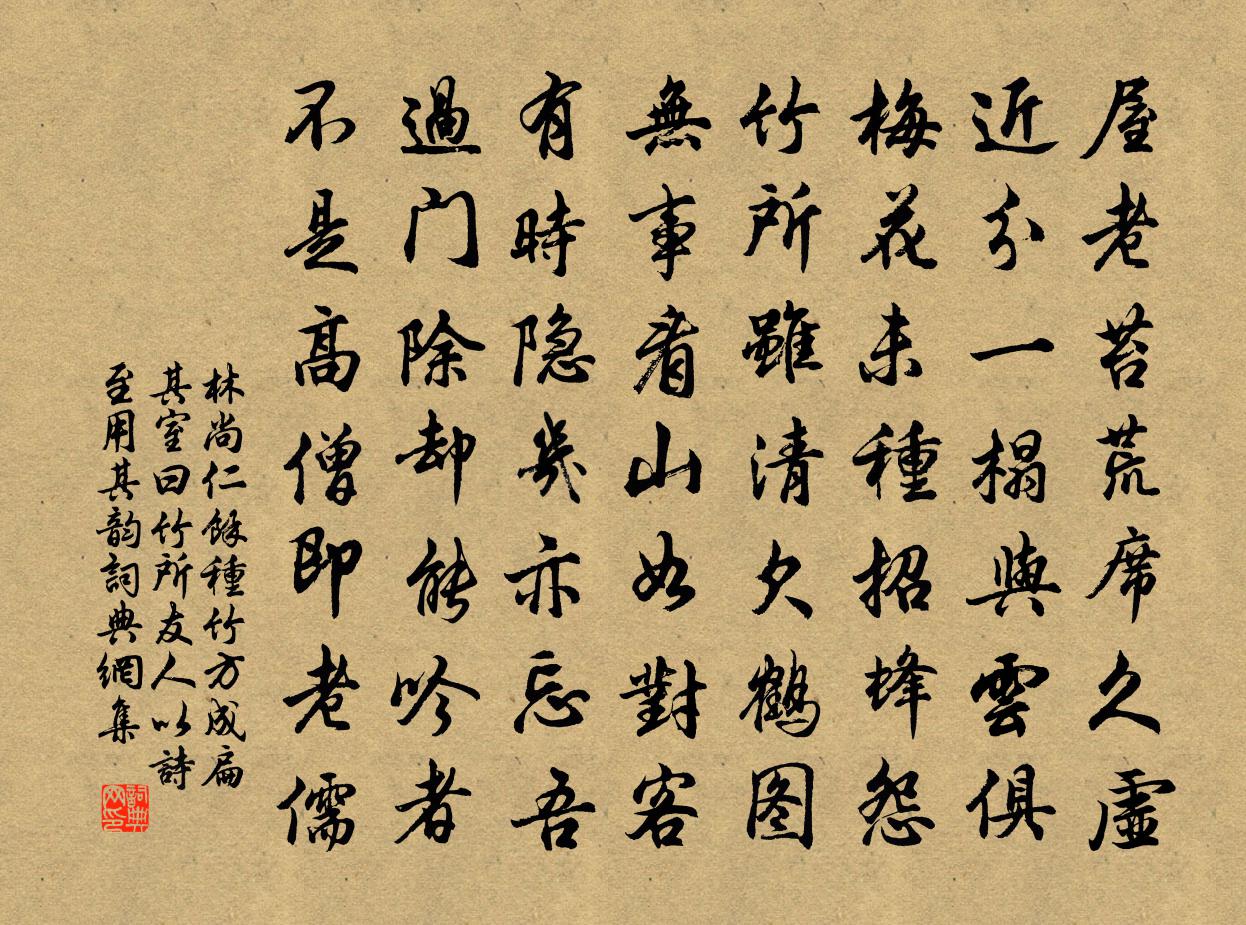 屋老苔荒席久虛
近分一榻與雲俱
梅花未種招蜂怨
竹所雖清欠鶴图
無事看山如對客
有時隐几亦忘吾
過门除却能吟者
不是高僧即老儒
林尚仁餘種竹方成扁
其室曰竹所友人以詩
至用其韵詞典網集
詞典
网印